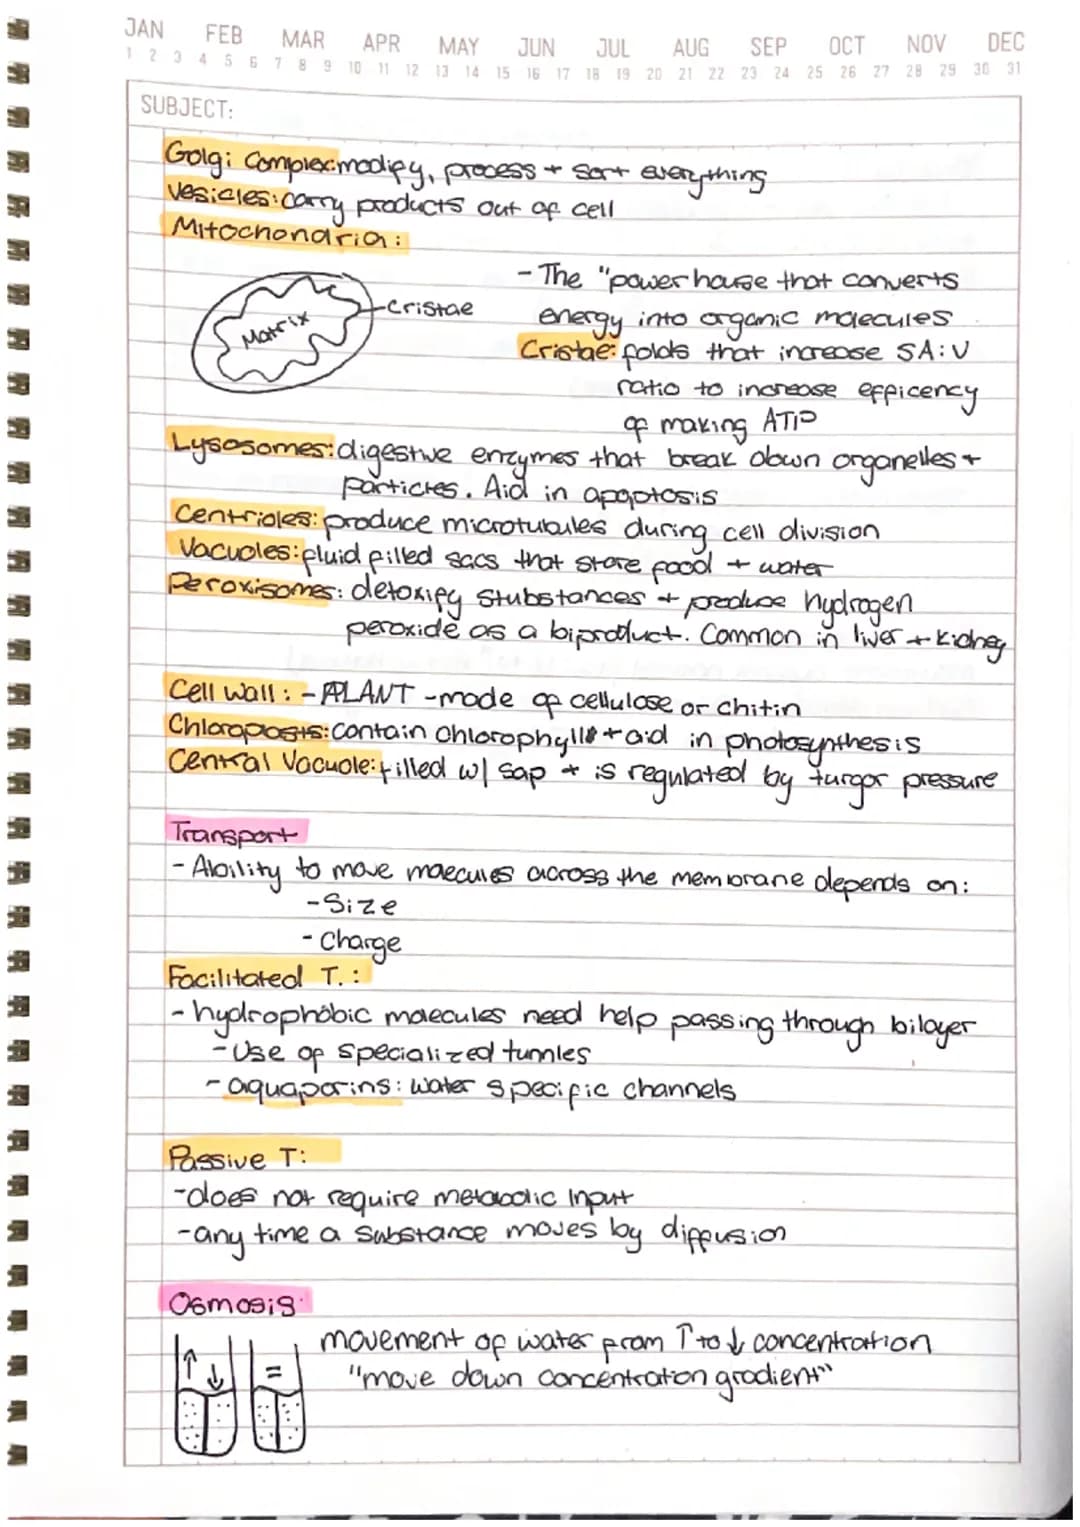 JAN FEB MAR APR MAY JUN JUL AUG SEP OCT NOV DEC
1 2 3 4 5 6 7 8 9 10 11 12 13 14 15 16 17 18 19 20 21 22 23 24 25 26 27 28 29 30 31
SUBJECT:
Golgi Complex: modify, process + sort everything
Vesicles: carry products out of cell
Mitochondria:
Matrix
cristae
- The "power house that converts
energy into organic molecules
Cristae: folds that increase SA:V
ratio to increase efficency
of making ATP
Lysosomes: digestive enzymes that break down organelles +
particles. Aid in apoptosis
Centrioles: produce microtubules during cell division
Vacuoles: fluid filled sacs that store food + water
Peroxisomes: detoxify stubstances + produce hydrogen
peroxide as a biproduct. Common in liver + kidney
Cell Wall: - PLANT - made of cellulose or chitin
Chloroplasts: contain chlorophyll + aid in photosynthesis
Central Vacuole: filled w/ sap + is regulated by turgor pressure
Transport
- Ability to move molecules across the membrane depends on:
- Size
- Charge
Facilitated T.:
- hydrophobic molecules need help passing through bilayer
- Use of specialized tunnles
- aquaporins: water specific channels
Passive T:
- does not require metabolic input
- any time a substance moves by diffusion
Osmosis
↑ ↓ =
movement of water from ↑ to ↓ concentration
"move down concentration gradient"